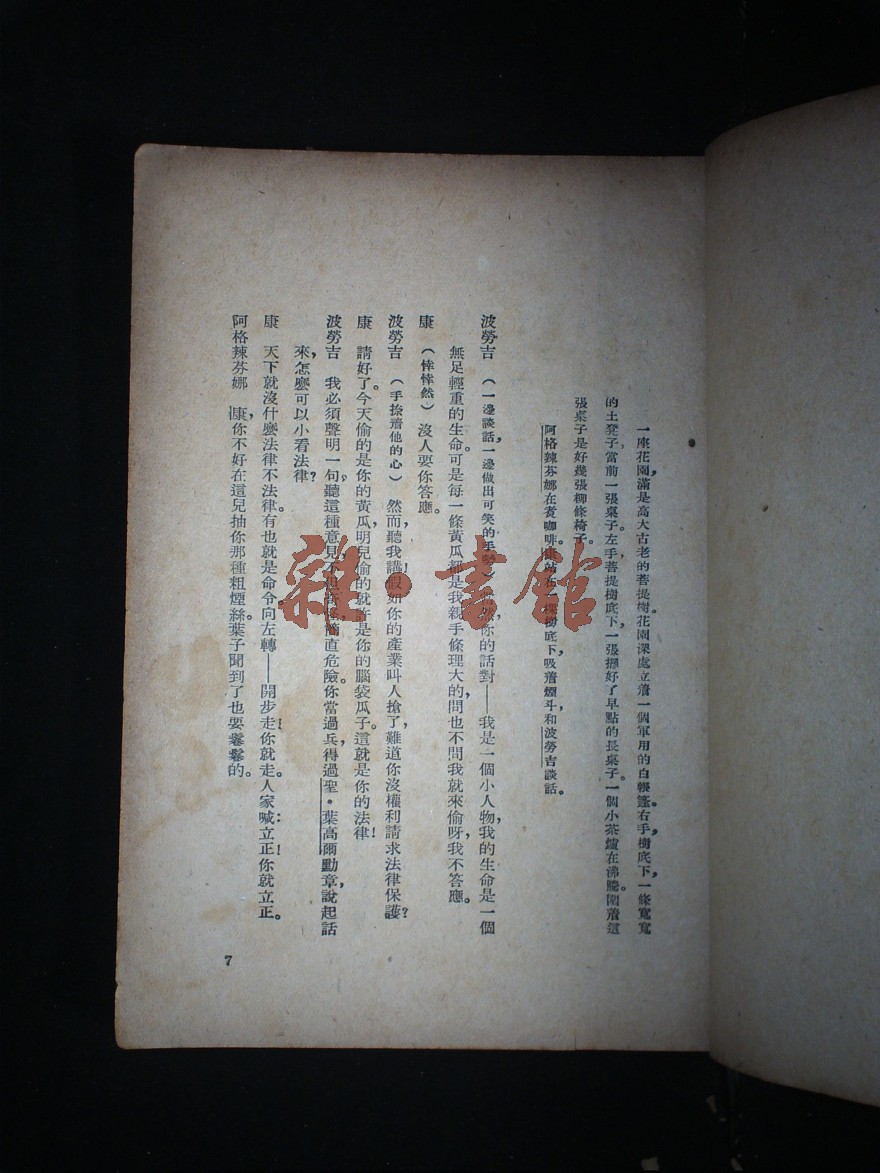 一座花園，滿是高大古老的菩提樹。花園深處立着一個軍用的白帳篷。右手樹底下，一條寬寬
的土凳子，當前一張桌子。左手菩提樹底下，一張擺好了早點的長桌子。一個小茶爐在沸騰。圍着這
張桌子是好幾張柳條椅子。
阿格辣芬娜在煑咖啡。康站在一棵樹底下，吸着煙斗，和波勞吉談話。
波勞吉　（一邊談話一邊做出可笑的手勢）然，你的話對——我是一個小人物，我的生命是一個
無足輕重的生命。可是每一條黃瓜都是我親手條理大的，問也不問我就來偷呀，我不答應。
康　（悻悻然）沒人要你答應。
波勞吉　（手捺着他的心）然而，聽我講！假如你的產業叫人搶了，難道你沒權利請求法律保護？
康　請好了。今天偷的是你的黃瓜，明兒偷的就許是你的腦袋瓜子。這就是你的法律！
波勞吉　我必須聲明一句，聽這種意見，不但簡直危險。你當過兵，得過聖·葉高爾勳章，說起話
來，怎麼可以小看法律？
康　天下就沒什麼法律不法律。有也就是命令。向左轉——開步走！你就走。人家喊：立正！你就立正。
阿格辣芬娜　康，你不好在這兒抽你那種粗煙絲。葉子聞到了也要鬈鬈的。
7
雜·書館